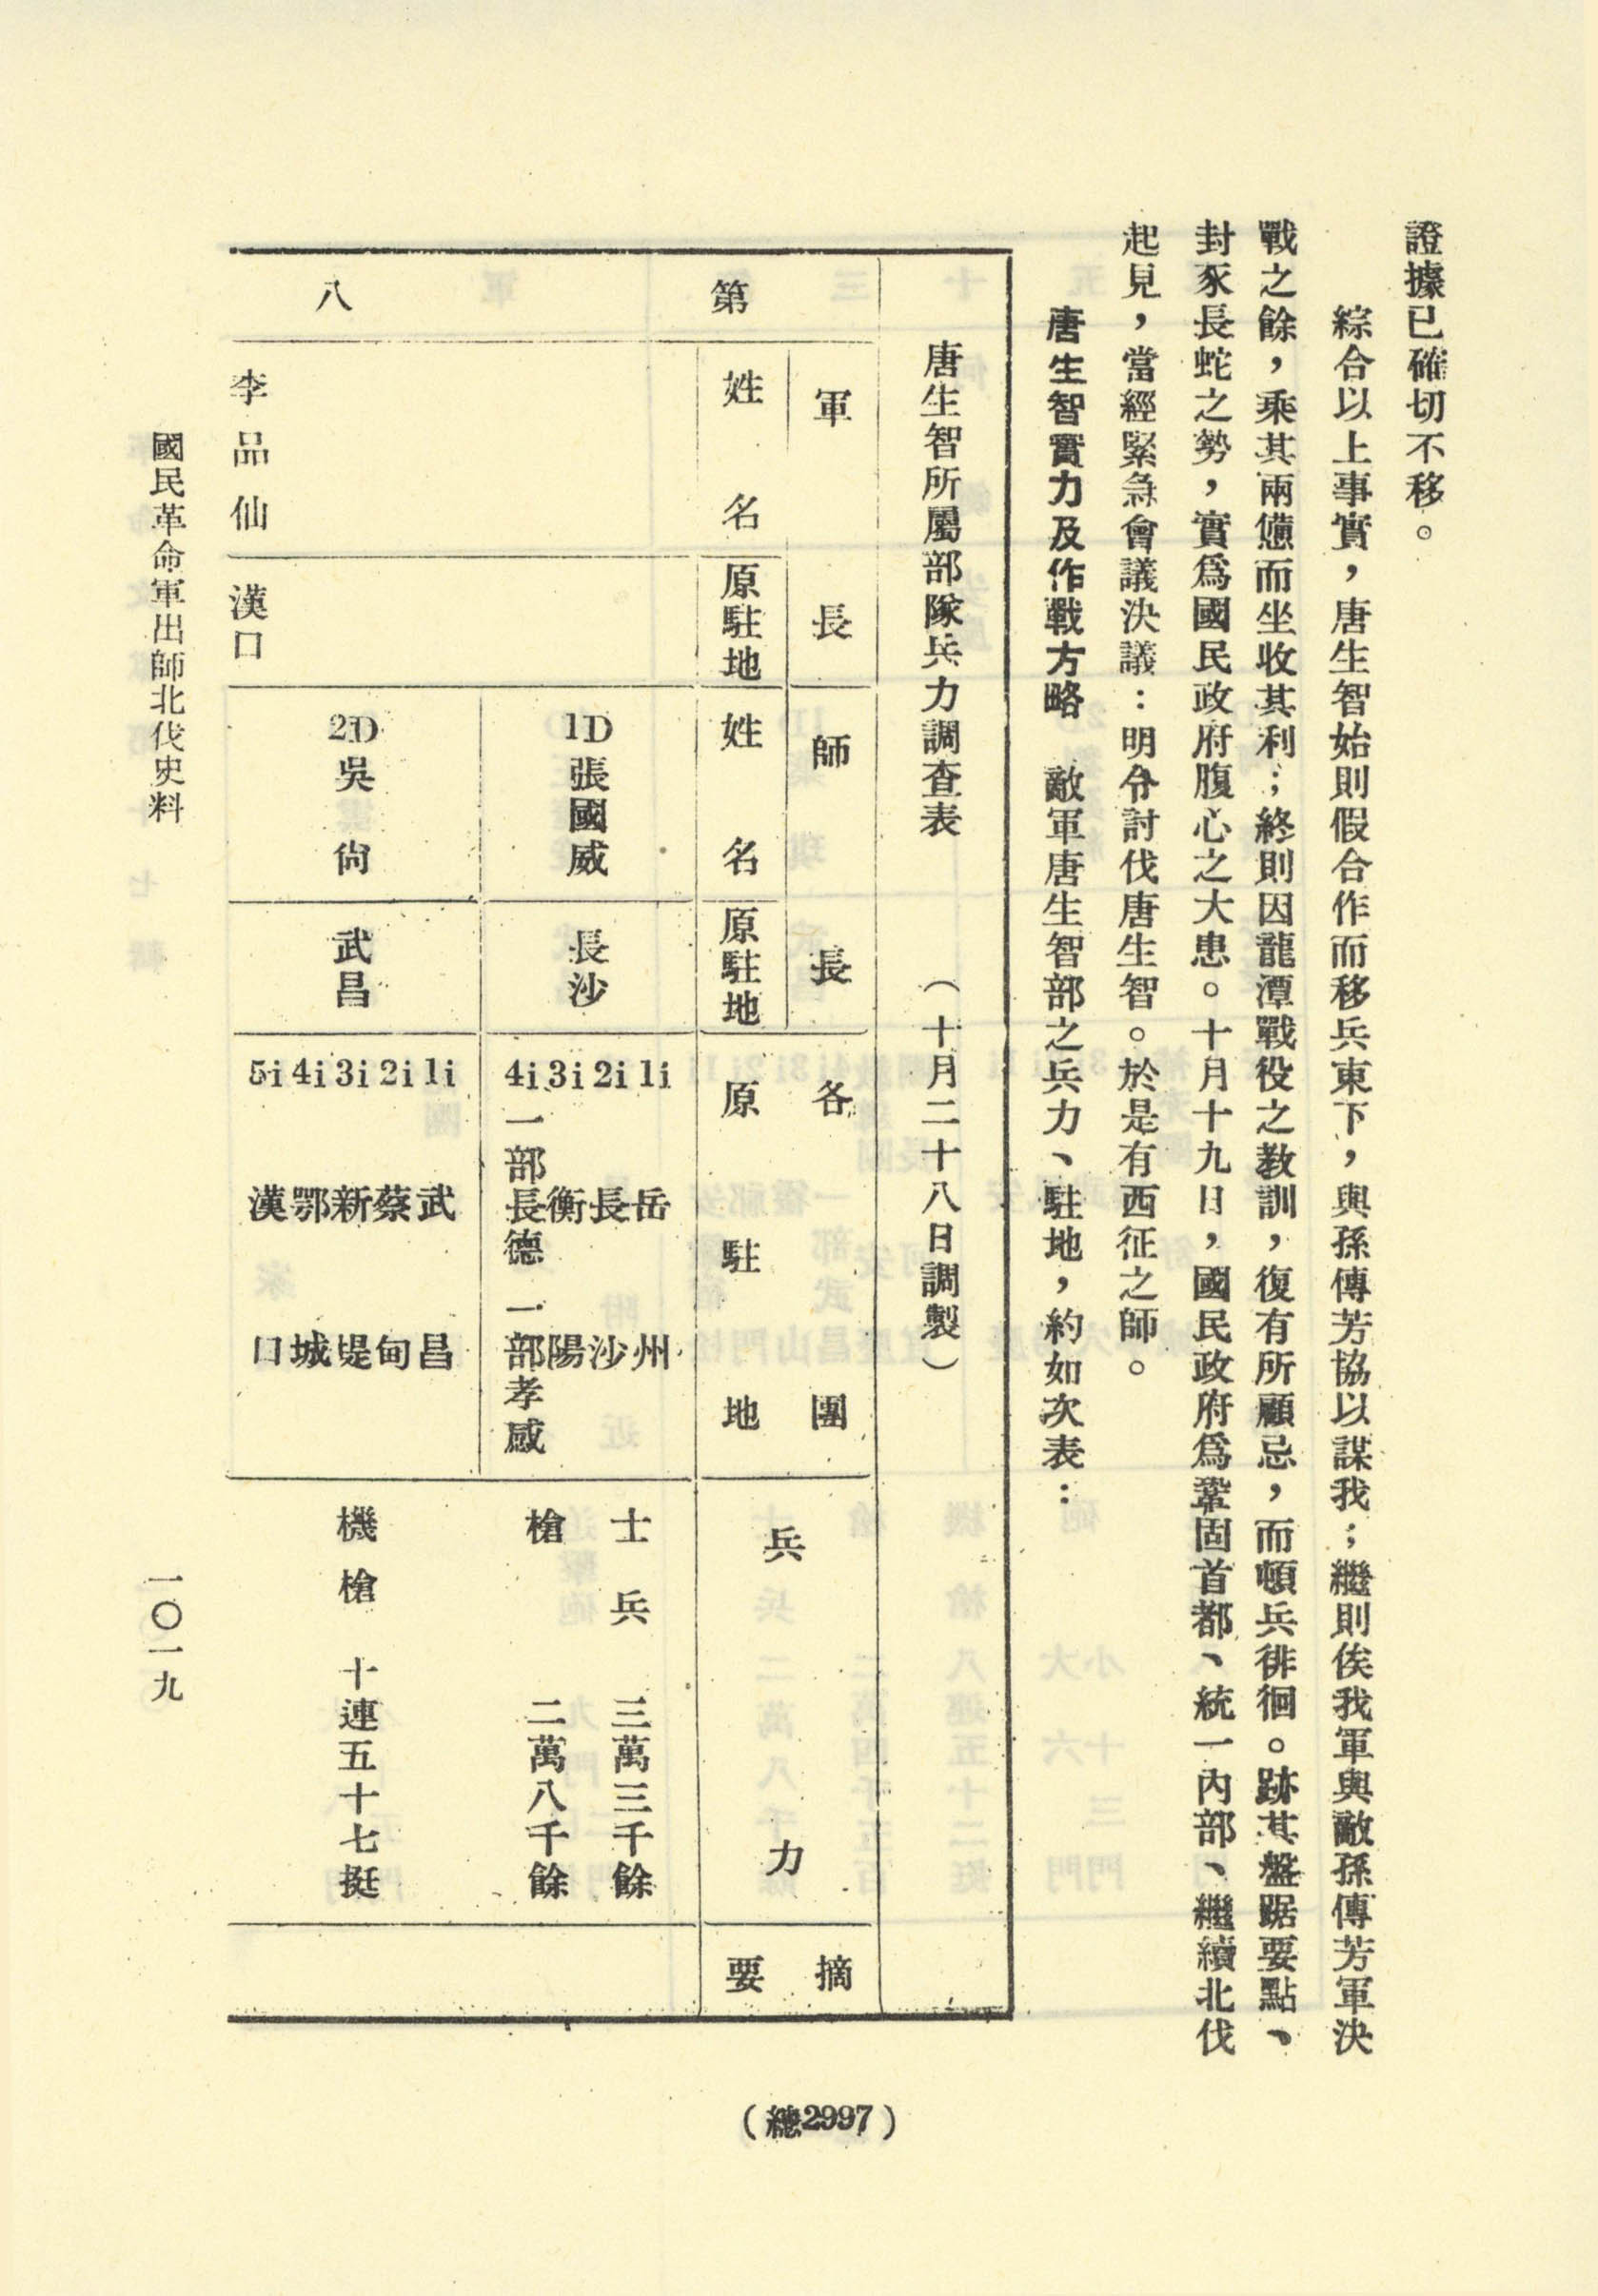 證據已確切不移。
綜合以上事實，唐生智始則假合作而移兵東下，與孫傳芳協以謀我；繼則俟我軍與敵孫傳芳軍決
戰之餘，乘其兩憊而坐收其利；終則因龍潭戰役之教訓，復有所顧忌，而頓兵徘徊。跡其盤踞要點、
封豕長蛇之勢，實爲國民政府腹心之大患。十月十九日，國民政府爲鞏固首都、統一內部、繼續北伐
起見，當經緊急會議決議：明令討伐唐生智。於是有西征之師。
唐生智實力及作戰方略　敵軍唐生智部之兵力、駐地，約如次表：
唐生智所屬部隊兵力調查表　（十月二十八日調製）
軍長
姓名
原駐地
師長
姓名
原駐地
各團
原駐地
兵力
摘要
第八
李品仙
漢口
1D張國威
長沙
1i 岳州
2i 長沙
3i 衡陽
4i 一部長德一部孝感
2D吳尙
武昌
1i 武昌
2i 蔡甸
3i 新堤
4i 鄂城
5i 漢口
士兵　三萬三千餘
槍　二萬八千餘
機槍　十連五十七挺
國民革命軍出師北伐史料
一〇一九
（總2997）